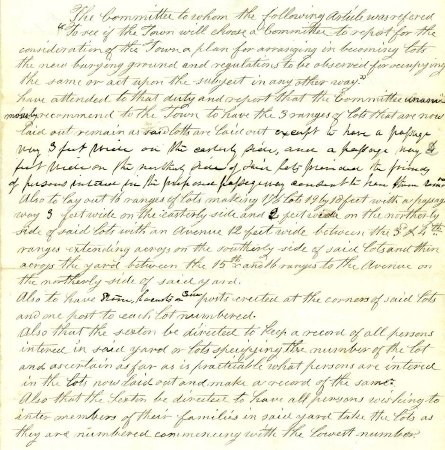 The Committee to whom the following Article was refered
"To see if the Town will choose a Committee to report for the
consideration of the Town a plan for arranging in becoming lots
the new burying ground and regulations to be observed for occupying
the same or act upon the subject in any other way"
have attended to that duty and report that the Committee unani
mously recommend to the Town to have the 3 ranges of lots that are now
laid out remain as said lots are laid out except to have a passage
way 3 feet wide on the easterly side, and a passage way 2
feet wide on the northerly side of said lots provided the friends
of persons intered in the proposed passageway consent to have them
Also to lay out 16 ranges of lots making lots 19 by 18 feet with a passage
way 3 feet wide on the easterly side and 2 feet wide on the northerly
side of said lot with an Avenue 12 feet wide between the 3d & 4th
ranges extending across on the southerly side of said lots and then
across the yard between the 15th and 16 ranges to the Avenue on
the northerly side of said yard.
Also to have posts erected at the corners of said lots
and one post to each lot numbered.
Also that the sexton be directed to keep a record of all persons
intered in said yard or lots specifying the number of the lot
and ascertain as far as is practicable what persons are intered
in the lots now laid out and make a record of the same.
Also that the Sexton be directed to have all persons wishing to
inter members of their families in said yard take the lots as
they are numbered commencing with the lowest number